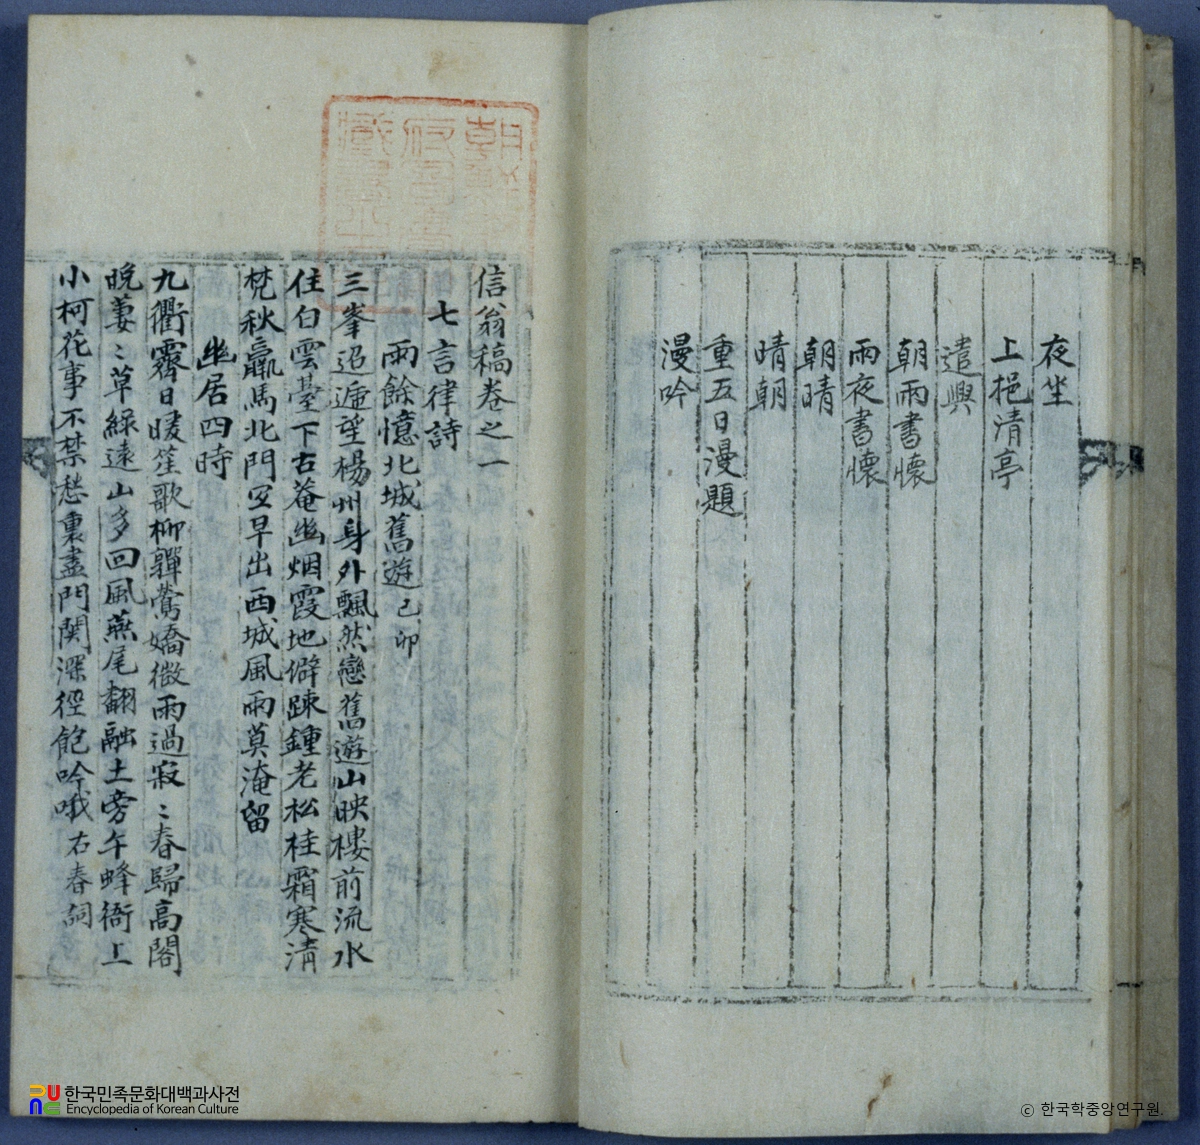 夜坐
上挹清亭
遣興
朝雨書懷
雨夜書懷
朝晴
晴朝
重五日漫題
漫吟
信翁稿卷之一
七言律詩
雨餘憶北城舊遊 己卯
三峯迢遞望楊州身外飄然戀舊遊山映樓前流水
住白雲臺下古菴幽烟霞地僻踈鍾老松桂霜寒清
梵秋羸馬北門空早出西城風雨莫淹留
幽居四時
九衢霽日暖笙歌柳嚲鶯嬌微雨過寂〻春歸高閣
晚萋〻草綠遠山多回風燕尾翻融土旁午蜂衙上
小柯花事不禁愁裏盡門関深徑飽吟哦 右春詞
한국민족문화대백과사전
Encyclopedia of Korean Culture
© 한국학중앙연구원.